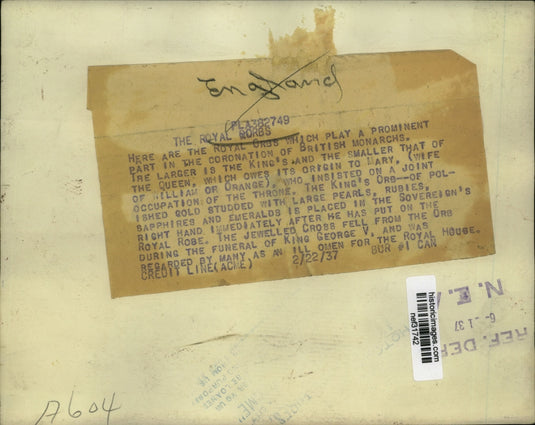 England
(PLA382749
THE ROYAL OORBS
HERE ARE THE ROYAL ORBS WHICH PLAY A PROMINENT
PART IN THE CORONATION OF BRITISH MONARCHS.
THE LARGER IS THE KING'S AND THE SMALLER THAT OF
THE QUEEN, WHICH OWES ITS ORIGIN TO MARY, (WIFE
OF WILLIAM OF ORANGE), WHO INSISTED ON A JOINT
OCCUPATION OF THE THRONE. THE KING'S ORB--OF POL-
ISHED GOLD STUDDED WITH LARGE PEARLS, RUBIES,
SAPPHIRES AND EMERALDS IS PLACED IN THE SOVEREIGN'S
RIGHT HAND IMMEDIATELY AFTER HE HAS PUT ON THE
ROYAL ROBE. THE JEWELLED CROSS FELL FROM THE ORB
DURING THE FUNERAL OF KING GEORGE V. AND WAS
REGARDED BY MANY AS AN ILL OMEN FOR THE ROYAL HOUSE.
CREDIT LINE(ACME) 2/22/37 BUR #1 CAN
historicimages.com
nef31742
N.E.
6-137
REF. DE
A604